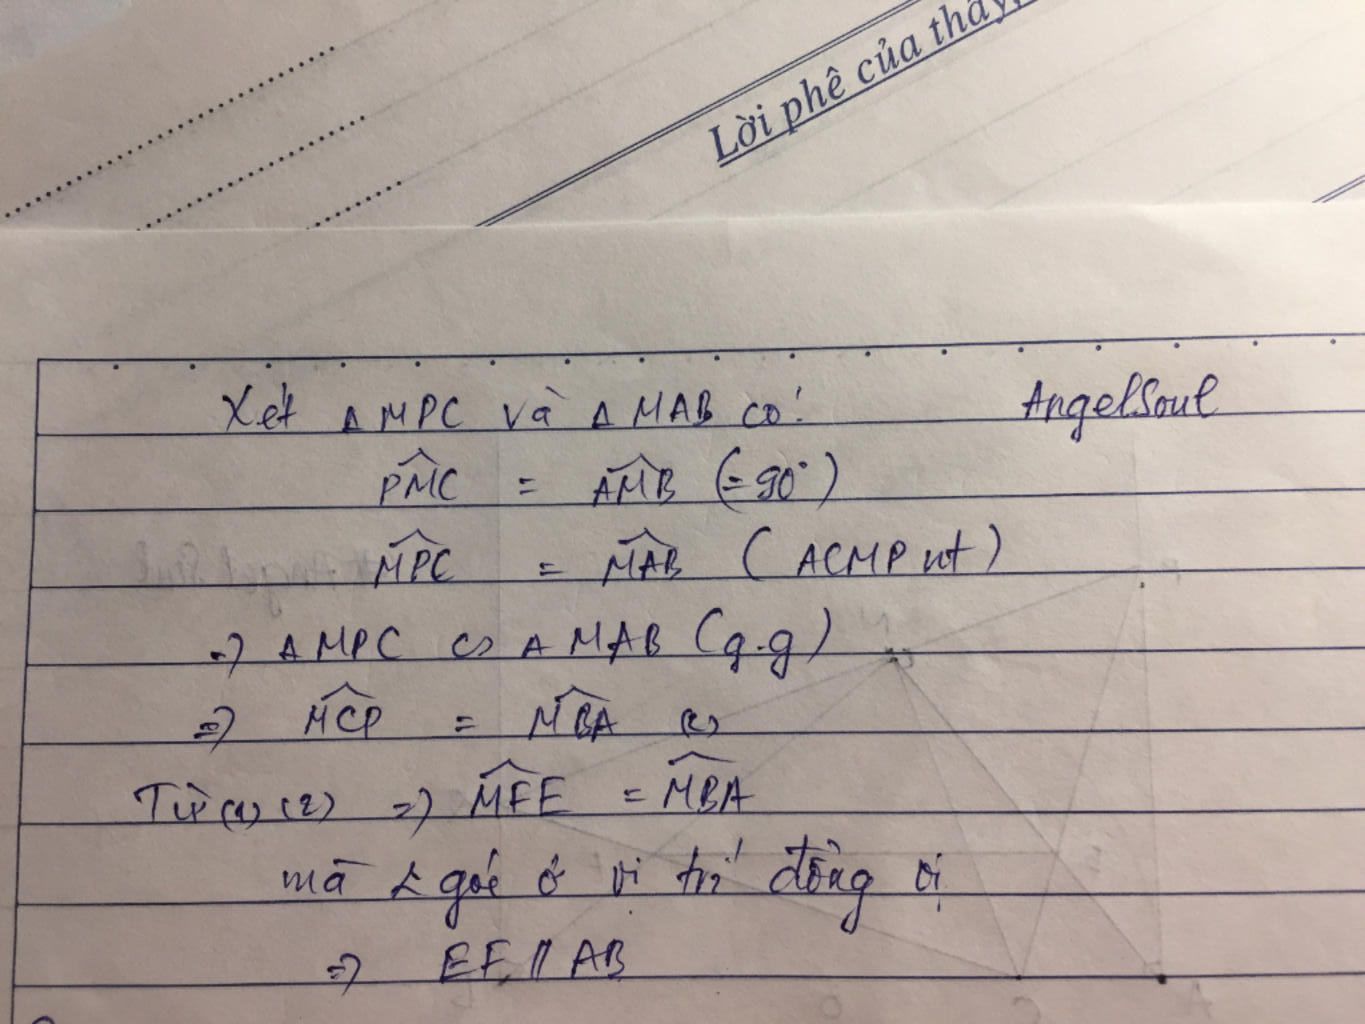 Lời phê của thầy,
Xét Δ MPC và Δ MAB có: AngelSoul
PMC = AMB (=90°)
MPC = MAB (ACMP nt)
=> Δ MPC ∽ Δ MAB (g.g)
=> MCP = MBA (2)
Từ (1) (2) => MFE = MBA
mà 2 góc ở vị trí đồng vị
=> EF // AB